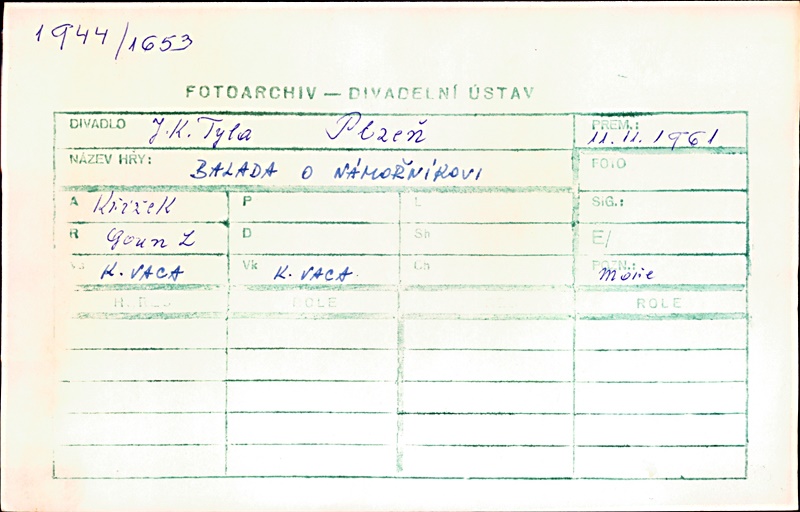 1944/1653
FOTOARCHIV — DIVADELNÍ ÚSTAV
DIVADLO J.K. Tyla Plzeň PREM.: 11.11.1961
NÁZEV HRY: BALADA O NÁMOŘNÍKOVI FOTO
A Křížek P L SIG.:
R Goun L D Sh E/
K. VACA Vk K. VACA Ch POZN.: Moře
ROLE ROLE